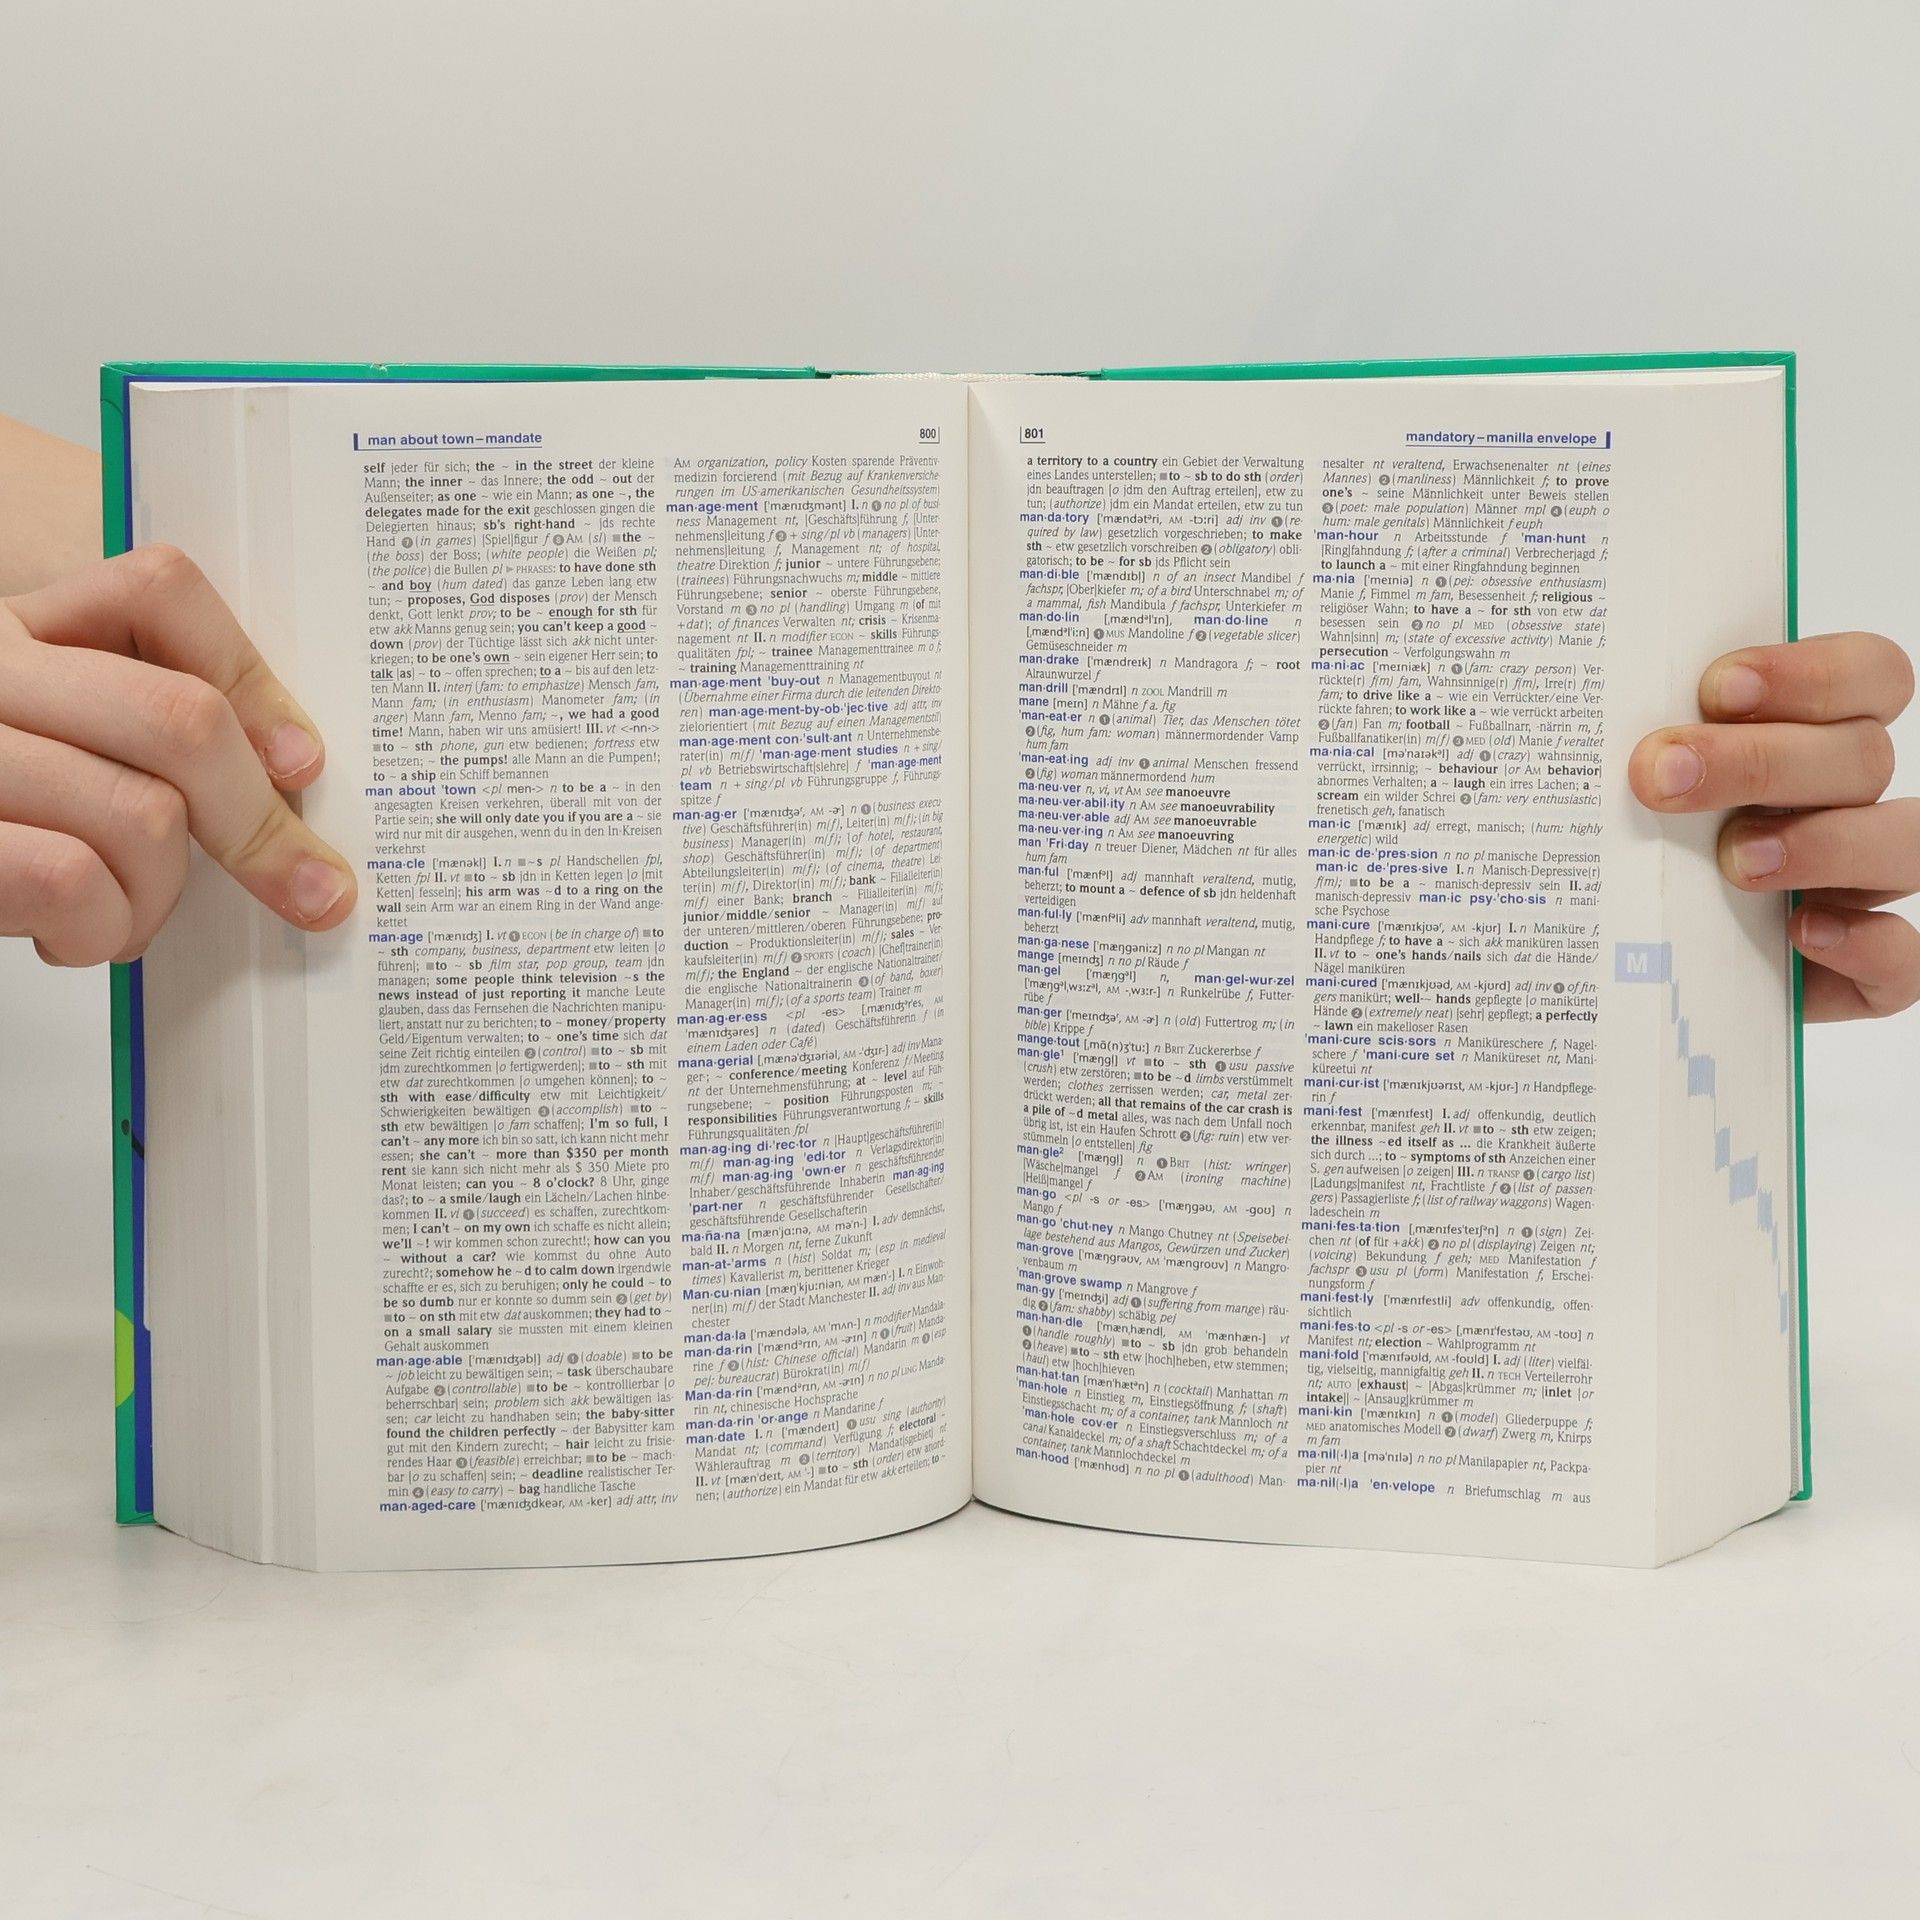 man about town–mandate
800
self jeder für sich; the ~ in the street der kleine
Mann; the inner ~ das Innere; the odd ~ out der
Außenseiter; as one ~ wie ein Mann; as one ~, the
delegates made for the exit geschlossen gingen die
Delegierten hinaus; sb's right-hand ~ jds rechte
Hand ❼ (in games) |Spiel|figur f ❽ AM (sl) ■the ~
(the boss) der Boss; (white people) die Weißen pl;
(the police) die Bullen pl ▶ PHRASES: to have done sth
~ and boy (hum dated) das ganze Leben lang etw
tun; ~ proposes, God disposes (prov) der Mensch
denkt, Gott lenkt prov; to be ~ enough for sth für
etw akk Manns genug sein; you can't keep a good ~
down (prov) der Tüchtige lässt sich akk nicht unter-
kriegen; to be one's own ~ sein eigener Herr sein; to
talk |as| ~ to ~ offen sprechen; to a ~ bis auf den letz-
ten Mann II. interj (fam: to emphasize) Mensch fam,
Mann fam; (in enthusiasm) Manometer fam; (in
anger) Mann fam, Menno fam; ~, we had a good
time! Mann, haben wir uns amüsiert! III. vt <-nn->
■to ~ sth phone, gun etw bedienen; fortress etw
besetzen; ~ the pumps! alle Mann an die Pumpen!;
to ~ a ship ein Schiff bemannen
man about 'town <pl men-> n to be a ~ in den
angesagten Kreisen verkehren, überall mit von der
Partie sein; she will only date you if you are a ~ sie
wird nur mit dir ausgehen, wenn du in den In-Kreisen
verkehrst
mana·cle ['mænəkl] I. n ■~s pl Handschellen fpl,
Ketten fpl II. vt ■to ~ sb jdn in Ketten legen |o |mit
Ketten| fesseln|; his arm was ~d to a ring on the
wall sein Arm war an einem Ring in der Wand ange-
kettet
man·age ['mænɪdʒ] I. vt ❶ ECON (be in charge of) ■to
~ sth company, business, department etw leiten |o
führen|; ■to ~ sb film star, pop group, team jdn
managen; some people think television ~s the
news instead of just reporting it manche Leute
glauben, dass das Fernsehen die Nachrichten manipu-
liert, anstatt nur zu berichten; to ~ money/property
Geld/Eigentum verwalten; to ~ one's time sich dat
seine Zeit richtig einteilen ❷ (control) ■to ~ sb mit
jdm zurechtkommen |o fertigwerden|; ■to ~ sth mit
etw dat zurechtkommen |o umgehen können|; to ~
sth with ease/difficulty etw mit Leichtigkeit/
Schwierigkeiten bewältigen ❸ (accomplish) ■to ~
sth etw bewältigen |o fam schaffen|; I'm so full, I
can't ~ any more ich bin so satt, ich kann nicht mehr
essen; she can't ~ more than $350 per month
rent sie kann sich nicht mehr als $ 350 Miete pro
Monat leisten; can you ~ 8 o'clock? 8 Uhr, ginge
das?; to ~ a smile/laugh ein Lächeln/Lachen hinbe-
kommen II. vi ❶ (succeed) es schaffen, zurechtkom-
men; I can't ~ on my own ich schaffe es nicht allein;
we'll ~! wir kommen schon zurecht!; how can you
~ without a car? wie kommst du ohne Auto
zurecht?; somehow he ~d to calm down irgendwie
schaffte er es, sich zu beruhigen; only he could ~ to
be so dumb nur er konnte so dumm sein ❷ (get by)
■to ~ on sth mit etw dat auskommen; they had to ~
on a small salary sie mussten mit einem kleinen
Gehalt auskommen
man·age·able ['mænɪdʒəbl] adj ❶ (doable) ■to be
~ job leicht zu bewältigen sein; ~ task überschaubare
Aufgabe ❷ (controllable) ■to be ~ kontrollierbar |o
beherrschbar| sein; problem sich akk bewältigen las-
sen; car leicht zu handhaben sein; the baby-sitter
found the children perfectly ~ der Babysitter kam
gut mit den Kindern zurecht; ~ hair leicht zu frisie-
rendes Haar ❸ (feasible) erreichbar; ■to be ~ mach-
bar |o zu schaffen| sein; ~ deadline realistischer Ter-
min ❹ (easy to carry) ~ bag handliche Tasche
man·aged-care ['mænɪdʒdkeər, AM -ker] adj attr, inv
AM organization, policy Kosten sparende Präventiv-
medizin forcierend (mit Bezug auf Krankenversiche-
rungen im US-amerikanischen Gesundheitssystem)
man·age·ment ['mænɪdʒmənt] I. n ❶ no pl of busi-
ness Management nt, |Geschäfts|führung f, |Unter-
nehmens|leitung f ❷ + sing/pl vb (managers) |Unter-
nehmens|leitung f, Management nt; of hospital,
theatre Direktion f; junior ~ untere Führungsebene;
(trainees) Führungsnachwuchs m; middle ~ mittlere
Führungsebene; senior ~ oberste Führungsebene,
Vorstand m ❸ no pl (handling) Umgang m |of mit
+dat); of finances Verwalten nt; crisis ~ Krisenma-
nagement nt II. n modifier ECON ~ skills Führungs-
qualitäten fpl; ~ trainee Managementtrainee m o f;
~ training Managementtraining nt
man·age·ment 'buy-out n Managementbuyout nt
(Übernahme einer Firma durch die leitenden Direkto-
ren) man·age·ment-by-ob·'jec·tive adj attr, inv
zielorientiert (mit Bezug auf einen Managementstil)
man·age·ment con·'sult·ant n Unternehmensbe-
rater(in) m(f) 'man·age·ment studies n + sing/
pl vb Betriebswirtschaft|slehre| f 'man·age·ment
team n + sing/pl vb Führungsgruppe f, Führungs-
spitze f
man·ag·er ['mænɪdʒəʳ, AM -ɚ] n ❶ (business execu-
tive) Geschäftsführer(in) m(f), Leiter(in) m(f); (in big
business) Manager(in) m(f); (of hotel, restaurant,
shop) Geschäftsführer(in) m(f); (of department)
Abteilungsleiter(in) m(f); (of cinema, theatre) Lei-
ter(in) m(f), Direktor(in) m(f); bank ~ Filialleiter(in)
m(f) einer Bank; branch ~ Filialleiter(in) m(f);
junior/middle/senior ~ Manager(in) m(f) auf
der unteren/mittleren/oberen Führungsebene; pro-
duction ~ Produktionsleiter(in) m(f); sales ~ Ver-
kaufsleiter(in) m(f) ❷ SPORTS (coach) |Chef|trainer(in)
m(f); the England ~ der englische Nationaltrainer/
die englische Nationaltrainerin ❸ (of band, boxer)
Manager(in) m(f); (of a sports team) Trainer m
man·ag·er·ess <pl -es> [ˌmænɪdʒəˈres, AM
ˈmænɪdʒəres] n (dated) Geschäftsführerin f (in
einem Laden oder Café)
mana·gerial [ˌmænəˈdʒɪəriəl, AM -ˈdʒɪr-] adj inv Mana-
ger-; ~ conference/meeting Konferenz f/Meeting
nt der Unternehmensführung; at ~ level auf Füh-
rungsebene; ~ position Führungsposten m; ~
responsibilities Führungsverantwortung f; ~ skills
Führungsqualitäten fpl
man·ag·ing di·'rec·tor n |Haupt|geschäftsführer(in)
m(f) man·ag·ing 'edi·tor n Verlagsdirektor(in)
m(f) man·ag·ing 'own·er n geschäftsführender
Inhaber/geschäftsführende Inhaberin man·ag·ing
'part·ner n geschäftsführender Gesellschafter/
geschäftsführende Gesellschafterin
ma·ña·na [mænˈjɑːnə, AM məˈn-] I. adv demnächst,
bald II. n Morgen nt, ferne Zukunft
man-at-'arms n (hist) Soldat m; (esp in medieval
times) Kavallerist m, berittener Krieger
Man·cu·nian [mæŋˈkjuːniən, AM mæn-] I. n Einwoh-
ner(in) m(f) der Stadt Manchester II. adj inv aus Man-
chester
man·da·la ['mændələ, AM 'mʌn-] n modifier Mandala-
man·da·rin ['mændərɪn, AM -ɚɪn] n ❶ (fruit) Manda-
rine f ❷ (hist: Chinese official) Mandarin m ❸ (esp
pej: bureaucrat) Bürokrat(in) m(f)
Man·da·rin ['mændərɪn, AM -ɚɪn] n no pl LING Manda-
rin nt, chinesische Hochsprache
man·da·rin 'or·ange n Mandarine f
man·date I. n ['mændeɪt] ❶ usu sing (authority)
Mandat nt; (command) Verfügung f; electoral ~
Wählerauftrag m ❷ (territory) Mandat|sgebiet| nt
II. vt [mænˈdeɪt, AM '-] ■to ~ sth (order) etw anord-
nen; (authorize) ein Mandat für etw akk erteilen; to ~
801
mandatory–manilla envelope
a territory to a country ein Gebiet der Verwaltung
eines Landes unterstellen; ■to ~ sb to do sth (order)
jdn beauftragen |o jdm den Auftrag erteilen|, etw zu
tun; (authorize) jdm ein Mandat erteilen, etw zu tun
man·da·tory ['mændətᵊri, AM -tɔːri] adj inv ❶ (re-
quired by law) gesetzlich vorgeschrieben; to make
sth ~ etw gesetzlich vorschreiben ❷ (obligatory) obli-
gatorisch; to be ~ for sb jds Pflicht sein
man·di·ble ['mændɪbl̩] n of an insect Mandibel f
fachspr, |Ober|kiefer m; of a bird Unterschnabel m; of
a mammal, fish Mandibula f fachspr, Unterkiefer m
man·do·lin [ˌmændᵊlˈɪn], man·do·line n
[ˌmændᵊlˈiːn] ❶ MUS Mandoline f ❷ (vegetable slicer)
Gemüseschneider m
man·drake ['mændreɪk] n Mandragora f; ~ root
Alraunwurzel f
man·drill ['mændrɪl] n ZOOL Mandrill m
mane [meɪn] n Mähne f a. fig
'man-eat·er n ❶ (animal) Tier, das Menschen tötet
❷ (fig, hum fam: woman) männermordender Vamp
hum fam
'man-eat·ing adj inv ❶ animal Menschen fressend
❷ (fig) woman männermordend hum
ma·neu·ver n, vi, vt AM see manoeuvre
ma·neu·ver·abil·ity n AM see manoeuvrability
ma·neu·ver·able adj AM see manoeuvrable
ma·neu·ver·ing n AM see manoeuvring
man 'Fri·day n treuer Diener, Mädchen nt für alles
hum fam
man·ful ['mænfᵊl] adj mannhaft veraltend, mutig,
beherzt; to mount a ~ defence of sb jdn heldenhaft
verteidigen
man·ful·ly ['mænfᵊli] adv mannhaft veraltend, mutig,
beherzt
man·ga·nese ['mæŋgəniːz] n no pl Mangan nt
mange [meɪndʒ] n no pl Räude f
man·gel ['mæŋgᵊl] n, man·gel-wur·zel
['mæŋgᵊlˌwɜːzᵊl, AM -ˌwɜːr-] n Runkelrübe f, Futter-
rübe f
man·ger ['meɪndʒəʳ, AM -ɚ] n (old) Futtertrog m; (in
bible) Krippe f
mange·tout [ˌmɑ̃(n)ʒˈtuː] n BRIT Zuckererbse f
man·gle¹ ['mæŋgl] vt ■to ~ sth ❶ usu passive
(crush) etw zerstören; ■to be ~d limbs verstümmelt
werden; clothes zerrissen werden; car, metal zer-
drückt werden; all that remains of the car crash is
a pile of ~d metal alles, was nach dem Unfall noch
übrig ist, ist ein Haufen Schrott ❷ (fig: ruin) etw ver-
stümmeln |o entstellen| fig
man·gle² ['mæŋgl] n ❶ BRIT (hist: wringer)
|Wäsche|mangel f ❷ AM (ironing machine)
|Heiß|mangel f
man·go <pl -s or -es> ['mæŋgəʊ, AM -goʊ] n
Mango f
man·go 'chut·ney n Mango Chutney nt (Speisebei-
lage bestehend aus Mangos, Gewürzen und Zucker)
man·grove ['mæŋgrəʊv, AM 'mæŋgroʊv] n Mangro-
venbaum m
'man·grove swamp n Mangrove f
man·gy ['meɪndʒi] adj ❶ (suffering from mange) räu-
dig ❷ (fam: shabby) schäbig pej
man·han·dle ['mænˌhændl, AM 'mænhæn-] vt
❶ (handle roughly) ■to ~ sb jdn grob behandeln
❷ (heave) ■to ~ sth etw |hoch|heben, etw stemmen;
(haul) etw |hoch|hieven
man·hat·tan [mænˈhætᵊn] n (cocktail) Manhattan m
'man·hole n Einstieg m, Einstiegsöffnung f; (shaft)
Einstiegsschacht m; of a container, tank Mannloch nt
'man·hole cov·er n Einstiegsverschluss m; of a
canal Kanaldeckel m; of a shaft Schachtdeckel m; of a
container, tank Mannlochdeckel m
man·hood ['mænhʊd] n no pl ❶ (adulthood) Man-
nesalter nt veraltend, Erwachsenenalter nt (eines
Mannes) ❷ (manliness) Männlichkeit f; to prove
one's ~ seine Männlichkeit unter Beweis stellen
❸ (poet: male population) Männer mpl ❹ (euph o
hum: male genitals) Männlichkeit f euph
'man-hour n Arbeitsstunde f 'man·hunt n
|Ring|fahndung f; (after a criminal) Verbrecherjagd f;
to launch a ~ mit einer Ringfahndung beginnen
ma·nia ['meɪniə] n ❶ (pej: obsessive enthusiasm)
Manie f, Fimmel m fam, Besessenheit f; religious ~
religiöser Wahn; to have a ~ for sth von etw dat
besessen sein ❷ no pl MED (obsessive state)
Wahn|sinn| m; (state of excessive activity) Manie f;
persecution ~ Verfolgungswahn m
ma·ni·ac ['meɪniæk] n ❶ (fam: crazy person) Ver-
rückte(r) f(m) fam, Wahnsinnige(r) f(m), Irre(r) f(m)
fam; to drive like a ~ wie ein Verrückter/eine Ver-
rückte fahren; to work like a ~ wie verrückt arbeiten
❷ (fan) Fan m; football ~ Fußballnarr, -närrin m, f,
Fußballfanatiker(in) m(f) ❸ MED (old) Manie f veraltet
ma·nia·cal [məˈnaɪəkᵊl] adj ❶ (crazy) wahnsinnig,
verrückt, irrsinnig; ~ behaviour |or AM behavior|
abnormes Verhalten; a ~ laugh ein irres Lachen; a ~
scream ein wilder Schrei ❷ (fam: very enthusiastic)
frenetisch geh, fanatisch
man·ic ['mænɪk] adj erregt, manisch; (hum: highly
energetic) wild
man·ic de·'pres·sion n no pl manische Depression
man·ic de·'pres·sive I. n Manisch-Depressive(r)
f(m); ■to be a ~ manisch-depressiv sein II. adj
manisch-depressiv man·ic psy·'cho·sis n mani-
sche Psychose
mani·cure ['mænɪkjʊəʳ, AM -kjʊr] I. n Maniküre f,
Handpflege f; to have a ~ sich akk maniküren lassen
II. vt to ~ one's hands/nails sich dat die Hände/
Nägel maniküren
mani·cured ['mænɪkjʊəd, AM -kjʊrd] adj inv ❶ of fin-
gers manikürt; well-~ hands gepflegte |o manikürte|
Hände ❷ (extremely neat) |sehr| gepflegt; a perfectly
~ lawn ein makelloser Rasen
'mani·cure scis·sors n Maniküreschere f, Nagel-
schere f 'mani·cure set n Maniküreset nt, Mani-
küreetui nt
mani·cur·ist ['mænɪkjʊərɪst, AM -kjʊr-] n Handpflege-
rin f
mani·fest ['mænɪfest] I. adj offenkundig, deutlich
erkennbar, manifest geh II. vt ■to ~ sth etw zeigen;
the illness ~ed itself as ... die Krankheit äußerte
sich durch ...; to ~ symptoms of sth Anzeichen einer
S. gen aufweisen |o zeigen| III. n TRANSP ❶ (cargo list)
|Ladungs|manifest nt, Frachtliste f ❷ (list of passen-
gers) Passagierliste f; (list of railway waggons) Wagen-
ladeschein m
mani·fes·ta·tion [ˌmænɪfesˈteɪʃᵊn] n ❶ (sign) Zei-
chen nt (of für +akk) ❷ no pl (displaying) Zeigen nt;
(voicing) Bekundung f geh; MED Manifestation f
fachspr ❸ usu pl (form) Manifestation f, Erschei-
nungsform f
mani·fest·ly ['mænɪfestli] adv offenkundig, offen-
sichtlich
mani·fes·to <pl -s or -es> [ˌmænɪˈfestəʊ, AM -toʊ] n
Manifest nt; election ~ Wahlprogramm nt
mani·fold ['mænɪfəʊld, AM -foʊld] I. adj (liter) vielfäl-
tig, vielseitig, mannigfaltig geh II. n TECH Verteilerrohr
nt; AUTO |exhaust| ~ |Abgas|krümmer m; |inlet |or
intake|| ~ |Ansaug|krümmer m
mani·kin ['mænɪkɪn] n ❶ (model) Gliederpuppe f;
MED anatomisches Modell ❷ (dwarf) Zwerg m, Knirps
m fam
ma·nil(·l)a [məˈnɪlə] n no pl Manilapapier nt, Packpa-
pier nt
ma·nil(·l)a 'en·velope n Briefumschlag m aus
M